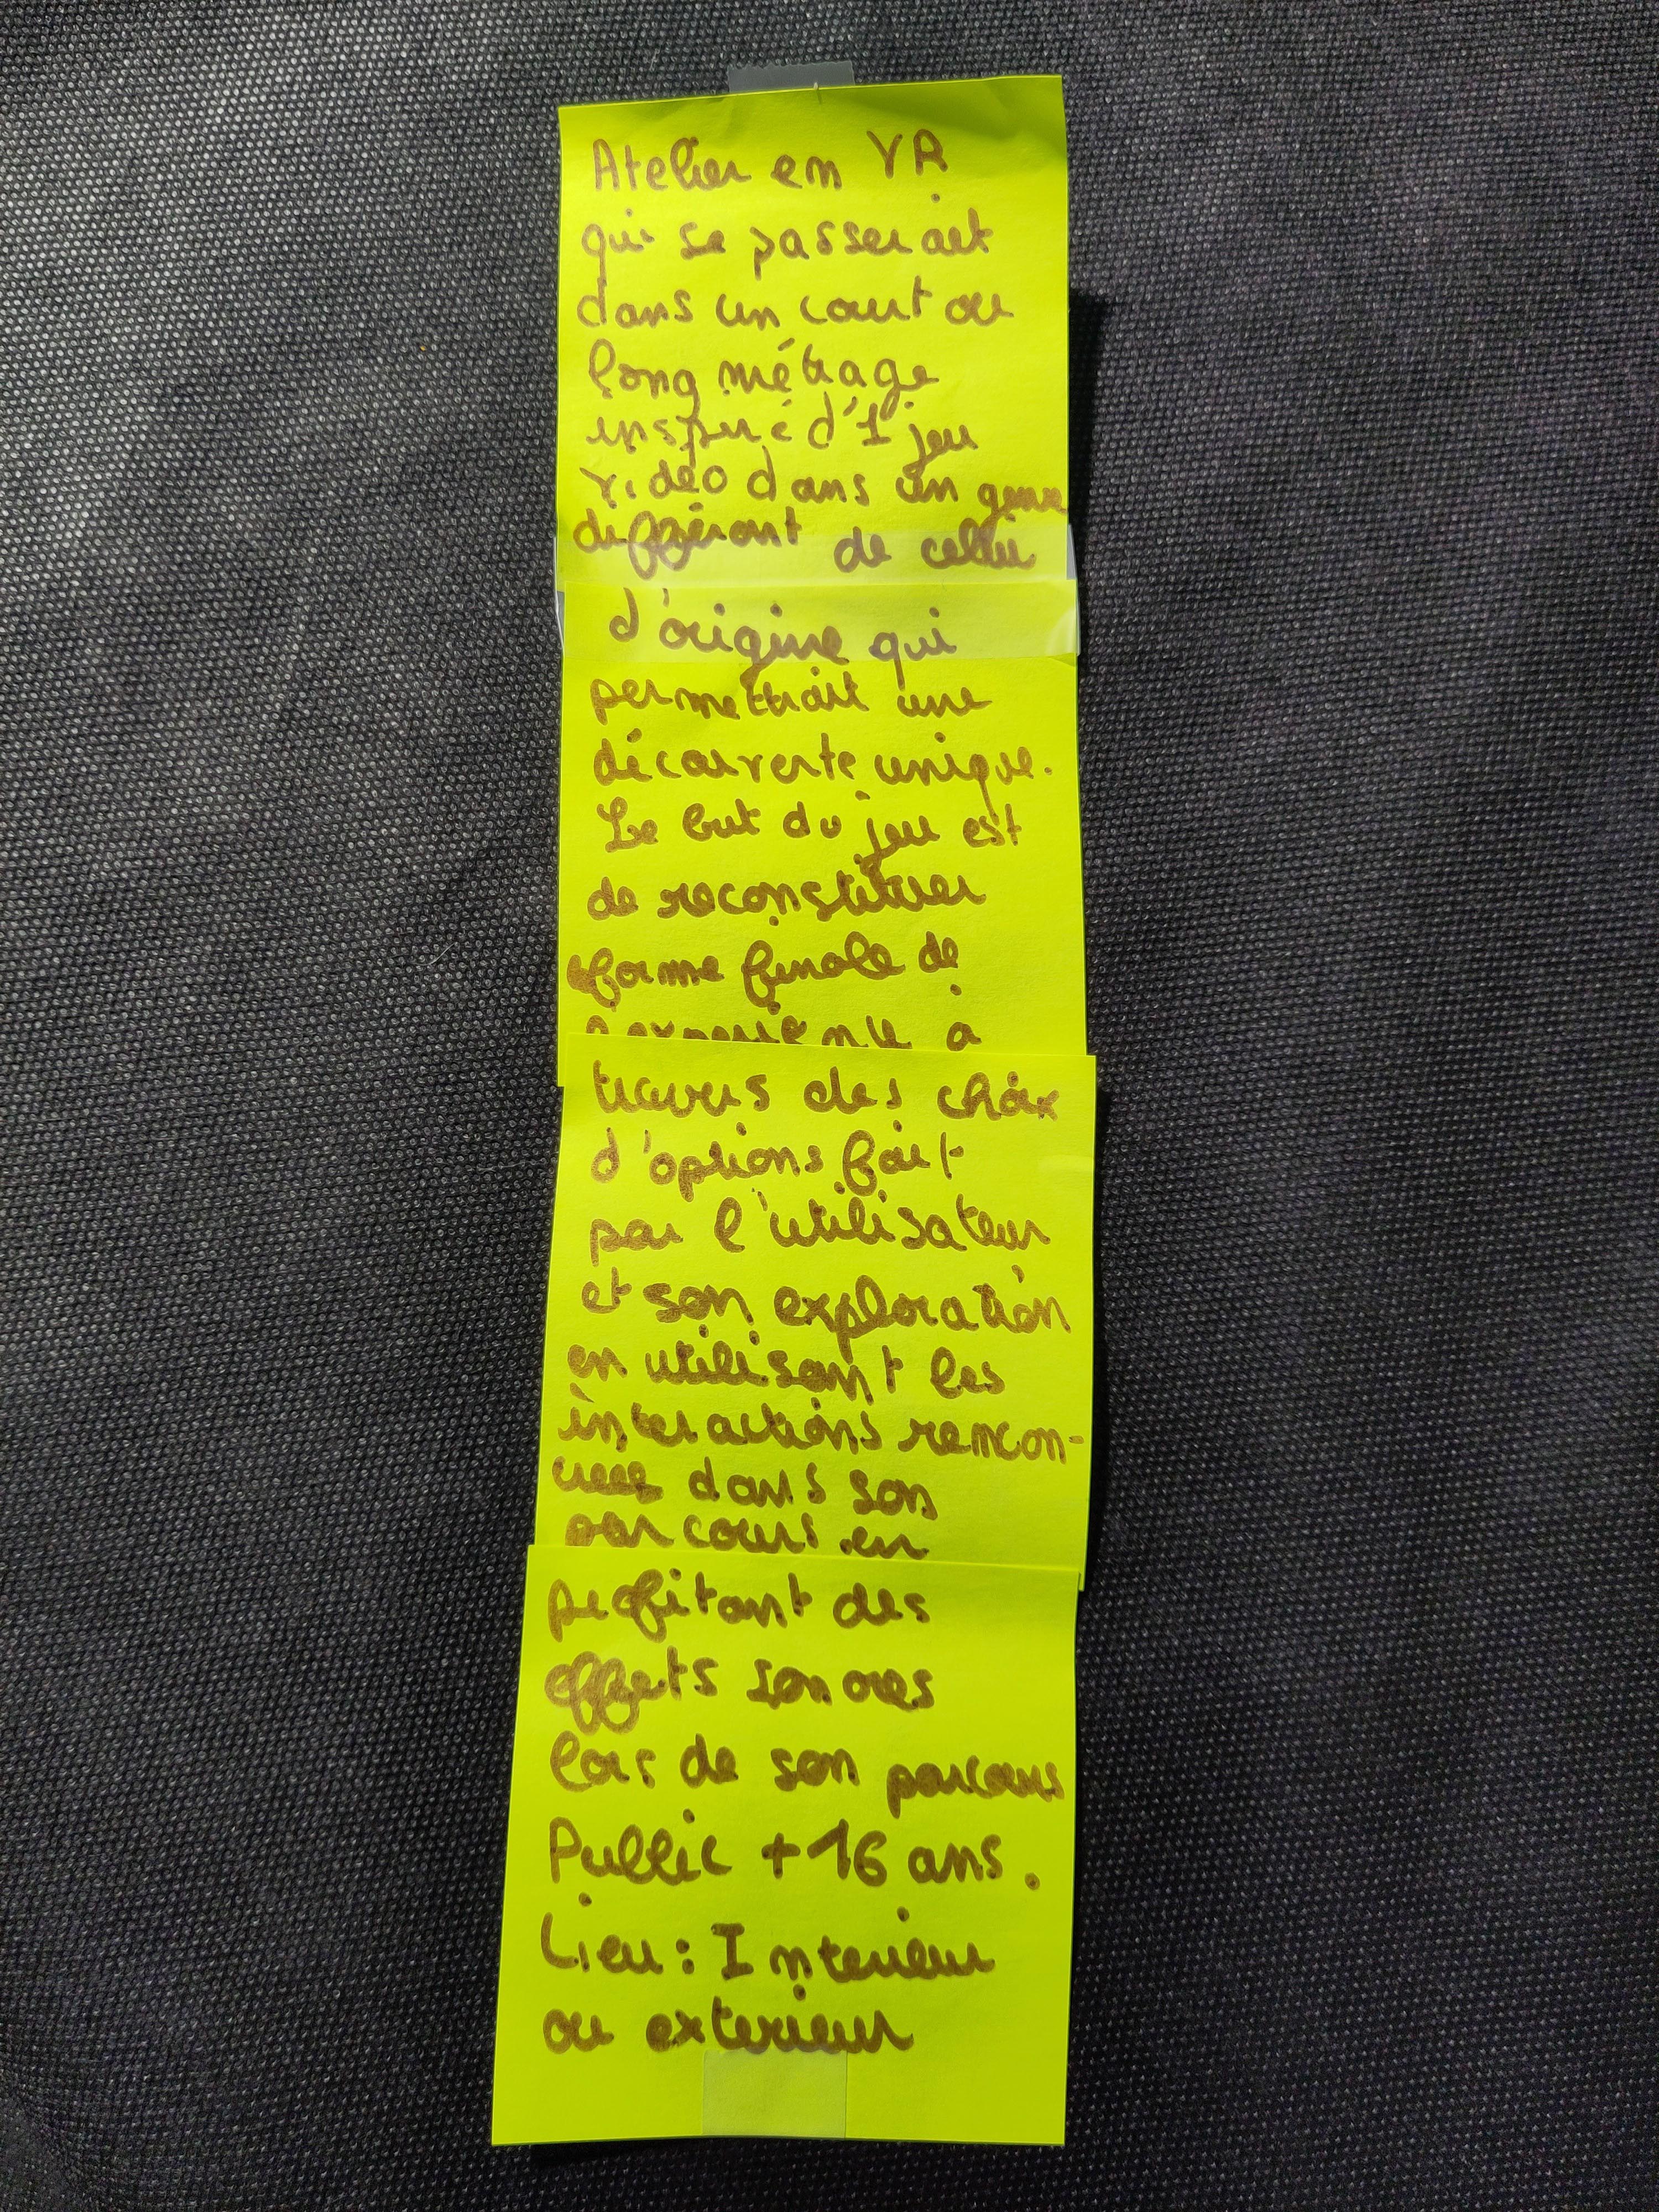 Atelier en VR
qui se passerait
dans un court ou
long métrage
inspiré d'1 jeu
vidéo dans un genre
différent de celui
d'origine qui
permettrait une
découverte unique.
Le but du jeu est
de reconstituer
forme finale de
l'experience à
travers des choix
d'options fait
par l'utilisateur
et son exploration
en utilisant les
interactions rencon-
trees dans son
parcours en
profitant des
effets sonores
lors de son parcours
Public + 16 ans.
Lieu : Interieur
ou exterieur